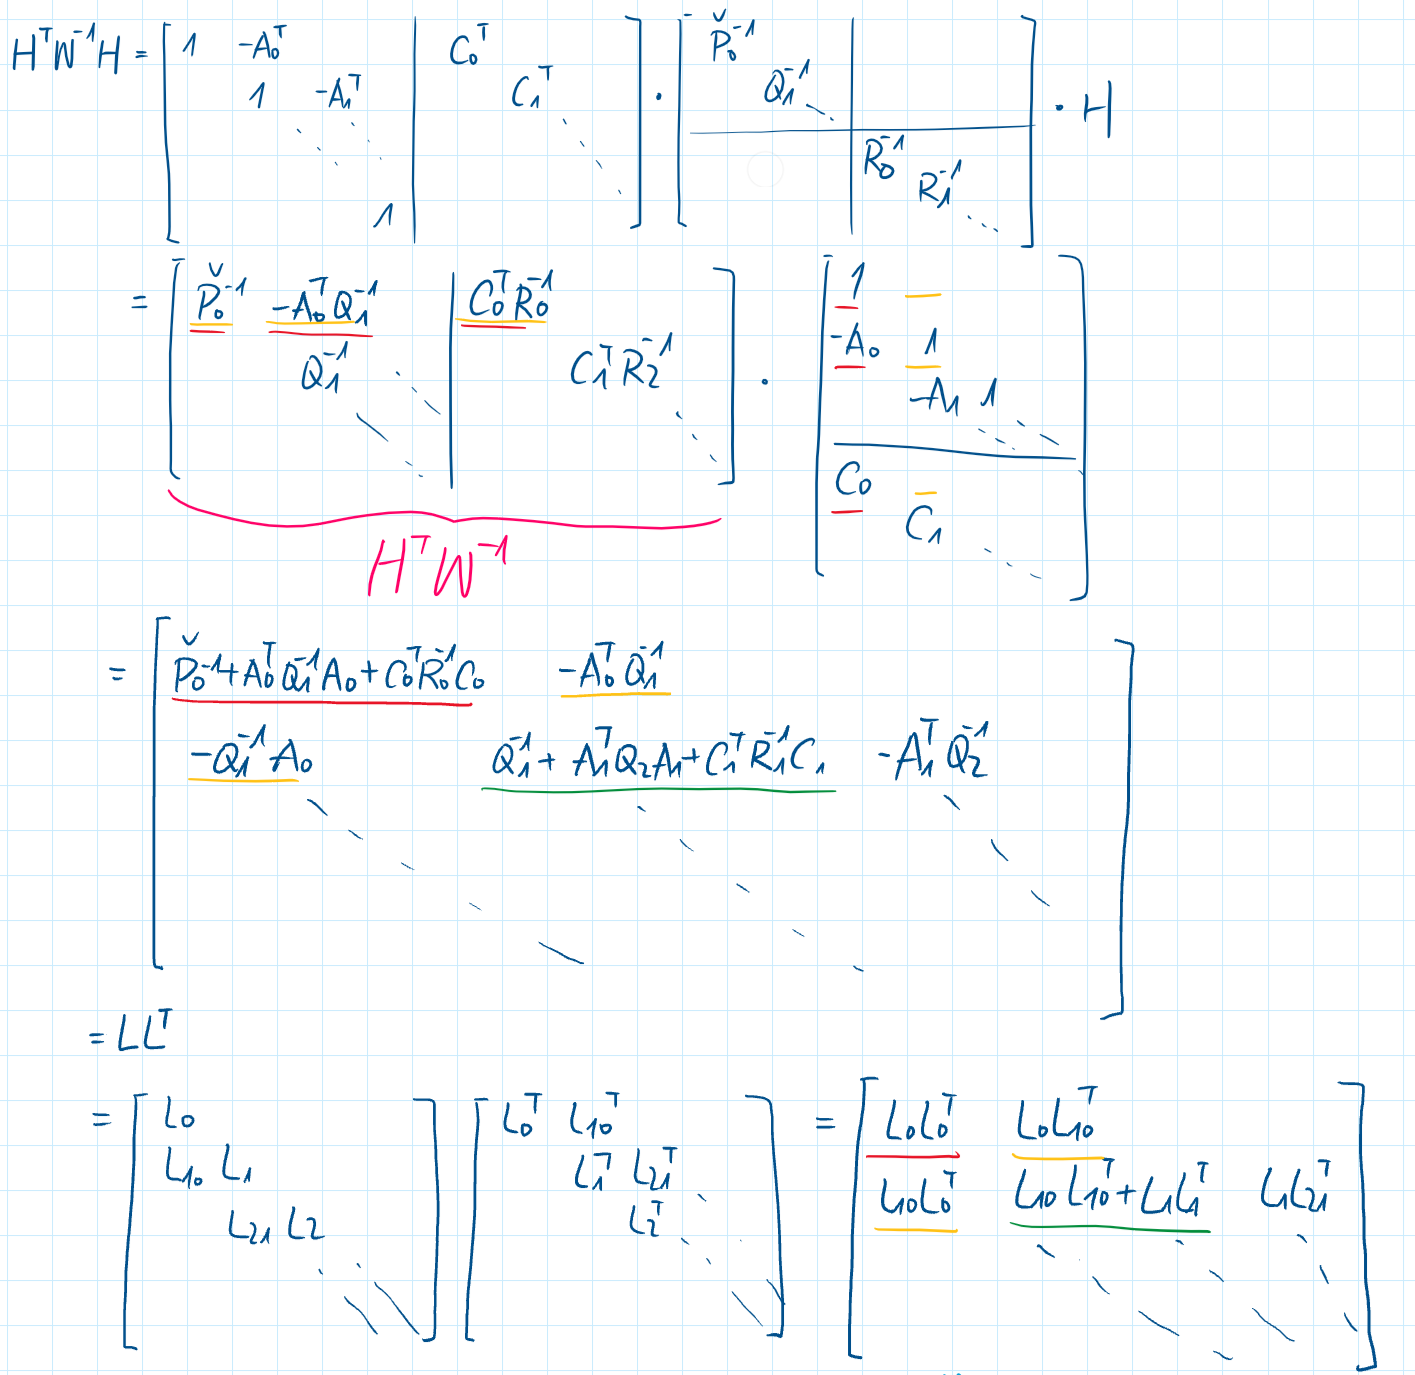 HᵀW⁻¹H = [ 1 -A₀ᵀ | C₀ᵀ ] · [ P̌₀⁻¹ | ] · H
1 -A₁ᵀ | C₁ᵀ Q₁⁻¹
R₀⁻¹
1 R₁⁻¹
= [ P̌₀⁻¹ -A₀ᵀQ₁⁻¹ | C₀ᵀR₀⁻¹ ] · [ 1
Q₁⁻¹ | C₁ᵀR₂⁻¹ -A₀ 1
-A₁ 1
C₀
C₁ ]
HᵀW⁻¹
= [ P̌₀⁻¹+A₀ᵀQ₁⁻¹A₀+C₀ᵀR₀⁻¹C₀ -A₀ᵀQ₁⁻¹
-Q₁⁻¹A₀ Q₁⁻¹+A₁ᵀQ₂A₁+C₁ᵀR₁⁻¹C₁ -A₁ᵀQ₂⁻¹ ]
= LLᵀ
= [ L₀ ] [ L₀ᵀ L₁₀ᵀ ] = [ L₀L₀ᵀ L₀L₁₀ᵀ ]
L₁₀ L₁ L₁ᵀ L₂₁ᵀ L₁₀L₀ᵀ L₁₀L₁₀ᵀ+L₁L₁ᵀ L₁L₂₁ᵀ
L₂₁ L₂ L₂ᵀ